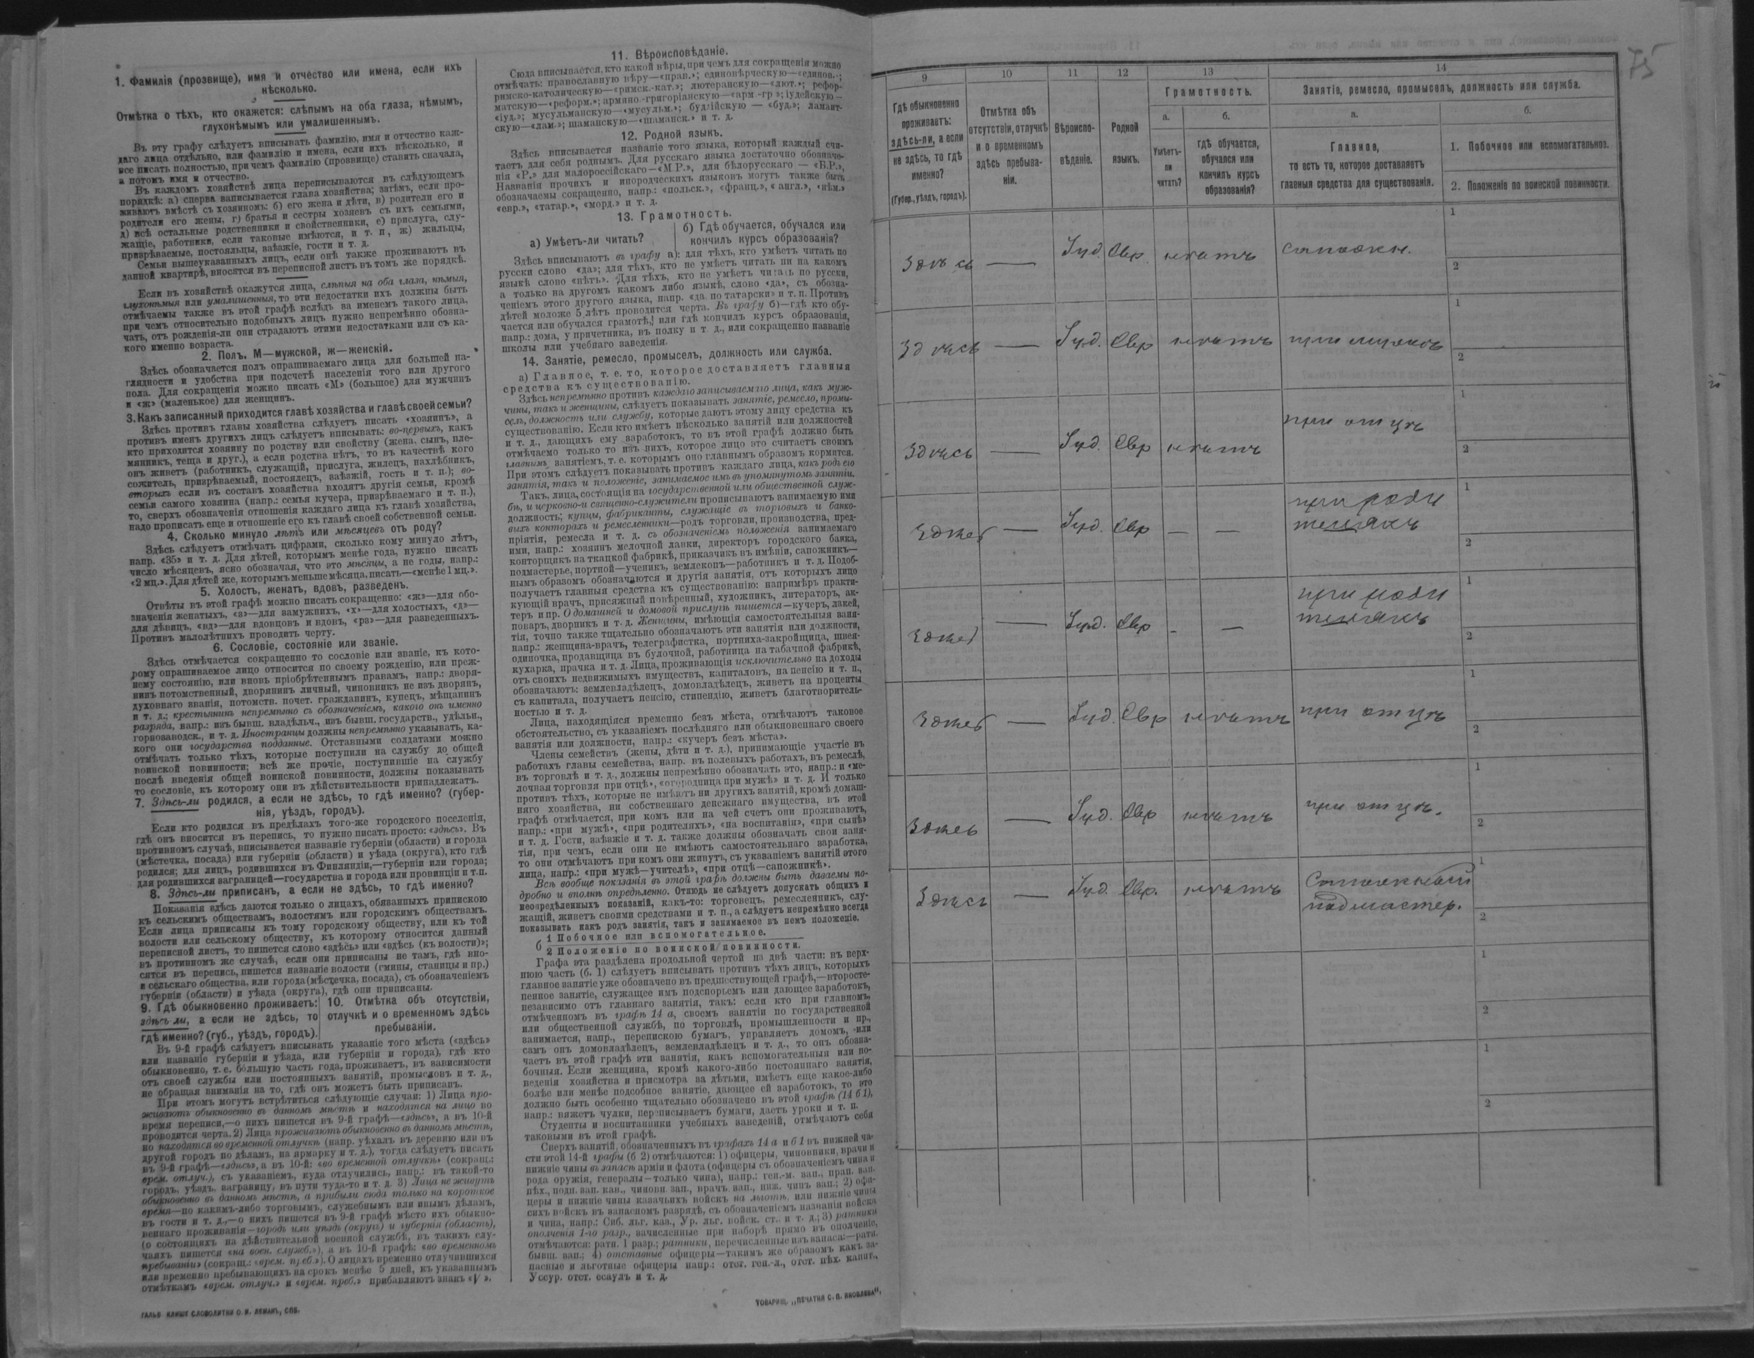 1. Фамилія (прозвище), имя и отчество или имена, если ихъ
нѣсколько.
Отмѣтка о тѣхъ, кто окажется: слѣпымъ на оба глаза, нѣмымъ,
глухонѣмымъ или умалишеннымъ.
Въ эту графу слѣдуетъ вписывать фамилію, имя и отчество каж-
даго лица отдѣльно, или фамилію и имена, если ихъ нѣсколько, и
все писать полностью, при чемъ фамилію (прозвище) ставить сначала,
а потомъ имя и отчество.
Въ каждомъ хозяйствѣ лица переписываются въ слѣдующемъ
порядкѣ: а) сперва записывается глава хозяйства; затѣмъ, если про-
живаютъ вмѣстѣ съ хозяиномъ: б) его жена и дѣти, в) родители его и
родители его жены, г) братья и сестры хозяевъ съ ихъ семьями,
д) всѣ остальные родственники и свойственники, е) прислуга, слу-
жащіе, работники, если таковые имѣются, и т. п., ж) жильцы,
призрѣваемые, постояльцы, заѣзжіе, гости и т. д.
Семьи вышеуказанныхъ лицъ, если онѣ также проживаютъ въ
данной квартирѣ, вносятся въ переписной листъ въ томъ же порядкѣ.
Если въ хозяйствѣ окажутся лица, слѣпыя на оба глаза, нѣмыя,
глухонѣмыя или умалишенныя, то эти недостатки ихъ должны быть
отмѣчаемы также въ этой графѣ вслѣдъ за именемъ такого лица,
при чемъ относительно подобныхъ лицъ нужно непремѣнно обозна-
чать, отъ рожденія-ли они страдаютъ этими недостатками или съ ка-
кого именно возраста.
2. Полъ. М—мужской, ж—женскій.
Здѣсь обозначается полъ опрашиваемаго лица для большей на-
глядности и удобства при подсчетѣ населенія того или другого
пола. Для сокращенія можно писать «М» (большое) для мужчинъ
и «ж» (маленькое) для женщинъ.
3. Какъ записанный приходится главѣ хозяйства и главѣ своей семьи?
Здѣсь противъ главы хозяйства слѣдуетъ писать «хозяинъ», а
противъ именъ другихъ лицъ слѣдуетъ вписывать: во-первыхъ, какъ
кто приходится хозяину по родству или свойству (жена, сынъ, пле-
мянникъ, теща и друг.), а если родства нѣтъ, то въ качествѣ кого
онъ живетъ (работникъ, служащій, прислуга, жилецъ, нахлѣбникъ,
сожитель, призрѣваемый, постоялецъ, заѣзжій, гость и т. п.); во-
вторыхъ если въ составъ хозяйства входятъ другія семьи, кромѣ
семьи самого хозяина (напр.: семья кучера, призрѣваемаго и т. п.),
то, сверхъ обозначенія отношенія каждаго лица къ главѣ хозяйства,
надо прописать еще и отношеніе его къ главѣ своей собственной семьи.
4. Сколько минуло лѣтъ или мѣсяцевъ отъ роду?
Здѣсь слѣдуетъ отмѣчать цифрами, сколько кому минуло лѣтъ,
напр. «35» и т. д. Для дѣтей, которымъ менѣе года, нужно писать
число мѣсяцевъ, ясно обозначая, что это мѣсяцы, а не годы, напр.:
«2 мц.». Для дѣтей же, которымъ меньше мѣсяца, писать—«менѣе 1 мц.».
5. Холостъ, женатъ, вдовъ, разведенъ.
Отвѣты въ этой графѣ можно писать сокращенно: «ж»—для обо-
значенія женатыхъ, «з»—для замужнихъ, «х»—для холостыхъ, «д»—
для дѣвицъ, «вд»—для вдовцовъ и вдовъ, «рз»—для разведенныхъ.
Противъ малолѣтнихъ проводить черту.
6. Сословіе, состояніе или званіе.
Здѣсь отмѣчается сокращенно то сословіе или званіе, къ кото-
рому опрашиваемое лицо относится по своему рожденію, или преж-
нему состоянію, или вновь пріобрѣтеннымъ правамъ, напр.: дворя-
нинъ потомственный, дворянинъ личный, чиновникъ не изъ дворянъ,
духовнаго званія, потомств. почет. гражданинъ, купецъ, мѣщанинъ
и т. д.; крестьянинъ непремѣнно съ обозначеніемъ, какого онъ именно
разряда, напр.: изъ бывш. владѣльч., изъ бывш. государств., удѣльн.,
горнозаводск., и т. д. Иностранцы должны непремѣнно указывать, ка-
кого они государства подданные. Отставными солдатами можно
отмѣчать только тѣхъ, которые поступили на службу до общей
воинской повинности; всѣ же прочіе, поступившіе на службу
послѣ введенія общей воинской повинности, должны показывать
то сословіе, къ которому они въ дѣйствительности принадлежатъ.
7. Здѣсь-ли родился, а если не здѣсь, то гдѣ именно? (губер-
нія, уѣздъ, городъ).
Если кто родился въ предѣлахъ того-же городского поселенія,
гдѣ онъ вносится въ перепись, то нужно писать просто: «здѣсь». Въ
противномъ случаѣ, вписывается названіе губерніи (области) и города
(мѣстечка, посада) или губерніи (области) и уѣзда (округа), кто гдѣ
родился; для лицъ, родившихся въ Финляндіи,—губерніи или города;
для родившихся заграницей—государства и города или провинціи и т.п.
8. Здѣсь-ли приписанъ, а если не здѣсь, то гдѣ именно?
Показанія здѣсь даются только о лицахъ, обязанныхъ припискою
къ сельскимъ обществамъ, волостямъ или городскимъ обществамъ.
Если лица приписаны къ тому городскому обществу, или къ той
волости или сельскому обществу, къ которому относится данный
переписной листъ, то пишется слово «здѣсь» или «здѣсь (къ волости)»;
въ противномъ же случаѣ, если они приписаны не тамъ, гдѣ вно-
сятся въ перепись, пишется названіе волости (гмины, станицы и пр.)
и сельскаго общества, или города (мѣстечка, посада), съ обозначеніемъ
губерніи (области) и уѣзда (округа), гдѣ они приписаны.
9. Гдѣ обыкновенно проживаетъ:
здѣсь-ли, а если не здѣсь, то
гдѣ именно? (губ., уѣздъ, городъ).
10. Отмѣтка объ отсутствіи,
отлучкѣ и о временномъ здѣсь
пребываніи.
Въ 9-й графѣ слѣдуетъ вписывать указаніе того мѣста («здѣсь»
или названіе губерніи и уѣзда, или губерніи и города), гдѣ кто
обыкновенно, т. е. большую часть года, проживаетъ, въ зависимости
отъ своей службы или постоянныхъ занятій, промысловъ и т. д.,
не обращая вниманія на то, гдѣ онъ можетъ быть приписанъ.
При этомъ могутъ встрѣтиться слѣдующіе случаи: 1) Лица про-
живаютъ обыкновенно въ данномъ мѣстѣ и находятся на лицо во
время переписи,—о нихъ пишется въ 9-й графѣ—«здѣсь», а въ 10-й
проводится черта. 2) Лица проживаютъ обыкновенно въ данномъ мѣстѣ,
но находятся во временной отлучкѣ (напр. уѣхалъ въ деревню или въ
другой городъ по дѣламъ, на ярмарку и т. д.), тогда слѣдуетъ писать
въ 9-й графѣ—«здѣсь», а въ 10-й: «во временной отлучкѣ» (сокращ.:
врем. отлуч.), съ указаніемъ, куда отлучились, напр.: въ такой-то
городъ, уѣздъ, заграницу, въ пути туда-то и т. д. 3) Лица не живутъ
обыкновенно въ данномъ мѣстѣ, а прибыли сюда только на короткое
время—по какимъ-либо торговымъ, служебнымъ или инымъ дѣламъ,
въ гости и т. д.,—о нихъ пишется въ 9-й графѣ мѣсто ихъ обыкно-
веннаго проживанія—городъ или уѣздъ (округъ) и губернія (область),
(о состоящихъ на дѣйствительной военной службѣ, въ такихъ слу-
чаяхъ пишется «на воен. служб.»), а въ 10-й графѣ: «во временномъ
пребываніи» (сокращ.: «врем. преб.»). О лицахъ временно отлучившихся
или временно пребывающихъ на срокъ менѣе 5 дней, къ указаннымъ
отмѣткамъ «врем. отлуч.» и «врем. преб.» прибавляютъ знакъ «V».
ГАЛЬВ. КЛИШЕ СЛОВОЛИТНИ О. И. ЛЕМАНЪ, СПБ.
11. Вѣроисповѣданіе.
Сюда вписывается, кто какой вѣры, при чемъ для сокращенія можно
отмѣчать: православную вѣру—«прав.»; единовѣрческую—«единов.»;
римско-католическую—«римск.-кат.»; лютеранскую—«лют.»; рефор-
матскую—«реформ.»; армяно-григоріанскую—«арм.-гр.»; іудейскую—
«іуд.»; мусульманскую—«мусульм.»; буддійскую — «буд.»; ламаит-
скую—«лам.»; шаманскую—«шаманск.» и т. д.
12. Родной языкъ.
Здѣсь вписывается названіе того языка, который каждый счи-
таетъ для себя роднымъ. Для русскаго языка достаточно обозначе-
нія «Р.» для малороссійскаго—«М.Р.», для бѣлорусскаго — «Б.Р.».
Названія прочихъ и инородческихъ языковъ могутъ также быть
обозначаемы сокращенно, напр.: «польск.», «франц.», «англ.», «нѣм.»
«евр.», «татар.», «морд.» и т. д.
13. Грамотность.
а) Умѣетъ-ли читать?
б) Гдѣ обучается, обучался или
кончилъ курсъ образованія?
Здѣсь вписываютъ въ графу а): для тѣхъ, кто умѣетъ читать по
русски слово «да»; для тѣхъ, кто не умѣетъ читать ни на какомъ
языкѣ слово «нѣтъ». Для тѣхъ, кто не умѣетъ читать по русски,
а только на другомъ какомъ либо языкѣ, слово «да», съ обозна-
ченіемъ этого другого языка, напр. «да по татарски» и т. п. Противъ
дѣтей моложе 5 лѣтъ проводится черта. Въ графу б)—гдѣ кто обу-
чается или обучался грамотѣ, или гдѣ кончилъ курсъ образованія,
напр.: дома, у причетника, въ полку и т. д., или сокращенно названіе
школы или учебнаго заведенія.
14. Занятіе, ремесло, промыселъ, должность или служба.
а) Главное, т. е. то, которое доставляетъ главныя
средства къ существованію.
Здѣсь непремѣнно противъ каждаго записываемаго лица, какъ муж-
чины, такъ и женщины, слѣдуетъ показывать занятіе, ремесло, промы-
селъ, должность или службу, которые даютъ этому лицу средства къ
существованію. Если кто имѣетъ нѣсколько занятій или должностей
и т. д., дающихъ ему заработокъ, то въ этой графѣ должно быть
отмѣчаемо только то изъ нихъ, которое лицо это считаетъ своимъ
главнымъ занятіемъ, т. е. которымъ оно главнымъ образомъ кормится.
При этомъ слѣдуетъ показывать противъ каждаго лица, какъ родъ его
занятія, такъ и положеніе, занимаемое имъ въ упомянутомъ занятіи.
Такъ, лица, состоящія на государственной или общественной служ-
бѣ, и церковно-и священно-служители прописываютъ занимаемую ими
должность; купцы, фабриканты, служащіе въ торговыхъ и банко-
выхъ конторахъ и ремесленники—родъ торговли, производства, пред-
пріятія, ремесла и т. д. съ обозначеніемъ положенія занимаемаго
ими, напр.: хозяинъ мелочной лавки, директоръ городского банка,
конторщикъ на ткацкой фабрикѣ, приказчикъ въ имѣніи, сапожникъ—
подмастерье, портной—ученикъ, землекопъ—работникъ и т. д. Подоб-
нымъ образомъ обозначаются и другія занятія, отъ которыхъ лицо
получаетъ главныя средства къ существованію: напримѣръ практи-
кующій врачъ, присяжный повѣренный, художникъ, литераторъ, ак-
теръ и пр. О домашней и домовой прислугѣ пишется—кучеръ, лакей,
поваръ, дворникъ и т. д. Женщины, имѣющія самостоятельныя заня-
тія, точно также тщательно обозначаютъ эти занятія или должности,
напр.: женщина-врачъ, телеграфистка, портниха-закройщица, швея-
одиночка, продавщица въ булочной, работница на табачной фабрикѣ,
кухарка, прачка и т. д. Лица, проживающія исключительно на доходы
отъ своихъ недвижимыхъ имуществъ, капиталовъ, на пенсію и т. п.,
обозначаютъ: землевладѣлецъ, домовладѣлецъ, живетъ на проценты
съ капитала, получаетъ пенсію, стипендію, живетъ благотворитель-
ностью и т. д.
Лица, находящіяся временно безъ мѣста, отмѣчаютъ таковое
обстоятельство, съ указаніемъ послѣдняго или обыкновеннаго своего
занятія или должности, напр.: «кучеръ безъ мѣста».
Члены семействъ (жены, дѣти и т. д.), принимающіе участіе въ
работахъ главы семейства, напр. въ полевыхъ работахъ, въ ремеслѣ,
въ торговлѣ и т. д., должны непремѣнно обозначать это, напр.: и «ме-
лочная торговля при отцѣ», «огородница при мужѣ» и т. д. И только
противъ тѣхъ, которые не имѣютъ ни другихъ занятій, кромѣ домаш-
няго хозяйства, ни собственнаго денежнаго имущества, въ этой
графѣ отмѣчается, при комъ или на чей счетъ они проживаютъ,
напр.: «при мужѣ», «при родителяхъ», «на воспитаніи», «при сынѣ»
и т. д. Гости, заѣзжіе и т. д. также должны обозначать свои заня-
тія, при чемъ, если они не имѣютъ самостоятельнаго заработка,
то они отмѣчаютъ при комъ они живутъ, съ указаніемъ занятій этого
лица, напр.: «при мужѣ—учителѣ», «при отцѣ—сапожникѣ».
Всѣ вообще показанія въ этой графѣ должны быть даваемы по-
дробно и вполнѣ опредѣленно. Отнюдь не слѣдуетъ допускать общихъ и
неопредѣленныхъ показаній, какъ-то: торговецъ, ремесленникъ, слу-
жащій, живетъ своими средствами и т. п., а слѣдуетъ непремѣнно всегда
показывать какъ родъ занятія, такъ и занимаемое въ немъ положеніе.
б 1 Побочное или вспомогательное.
2 Положеніе по воинской повинности.
Графа эта раздѣлена продольной чертой на двѣ части: въ верх-
нюю часть (б. 1) слѣдуетъ вписывать противъ тѣхъ лицъ, которыхъ
главное занятіе уже обозначено въ предшествующей графѣ,—второсте-
пенное занятіе, служащее имъ подспорьемъ или дающее заработокъ,
независимо отъ главнаго занятія, такъ: если кто при главномъ,
отмѣченномъ въ графѣ 14 а, своемъ занятіи по государственной
или общественной службѣ, по торговлѣ, промышленности и пр.,
занимается, напр., перепискою бумагъ, управляетъ домомъ, или
самъ онъ домовладѣлецъ, землевладѣлецъ и т. д., то онъ обозна-
чаетъ въ этой графѣ эти занятія, какъ вспомогательныя или по-
бочныя. Если женщина, кромѣ какого-либо постояннаго занятія,
веденія хозяйства и присмотра за дѣтьми, имѣетъ еще какое-либо
болѣе или менѣе подсобное занятіе, дающее ей заработокъ, то это
должно быть особенно тщательно обозначено въ этой графѣ (14 б 1),
напр.: вяжетъ чулки, переписываетъ бумаги, даетъ уроки и т. п.
Студенты и воспитанники учебныхъ заведеній, отмѣчаютъ себя
таковыми въ этой графѣ.
Сверхъ занятій, обозначенныхъ въ графахъ 14 а и б 1 въ нижней ча-
сти этой 14-й графы (б 2) отмѣчаются: 1) офицеры, чиновники, врачи и
нижніе чины въ запасѣ арміи и флота (офицеры съ обозначеніемъ чина и
рода оружія, генералы—только чина), напр.: ген.-м. зап., прап. зап.
пѣх., подп. зап. кав., чиновн. зап., врачъ зап., ниж. чинъ зап.; 2) офи-
церы и нижніе чины казачьихъ войскъ на льготѣ, или нижніе чины
сихъ войскъ въ запасномъ разрядѣ, съ обозначеніемъ названія войска
и чина, напр.: Сиб. льг. каз., Ур. льг. войск. ст., и т. д.; 3) ратники
ополченія 1-го разр., зачисленные при наборѣ прямо въ ополченіе,
отмѣчаются: ратн. 1 разр.; ратники, перечисленные изъ запаса:—ратн.
бывш. зап.; 4) отставные офицеры—такимъ же образомъ какъ за-
пасные и льготные офицеры напр.: отст. ген.-л., отст. пѣх. капит.,
Уссур. отст. есаулъ и т. д.
ТОВАРИЩ. „ПЕЧАТНЯ С. П. ЯКОВЛЕВА".
75
9 10 11 12 13 14
Гдѣ обыкновенно
проживаетъ:
здѣсь-ли, а если
не здѣсь, то гдѣ
именно?
(Губер., уѣздъ, городъ).
Отмѣтка объ
отсутствіи, отлучкѣ
и о временномъ
здѣсь пребыва-
ніи.
Вѣроиспо-
вѣданіе.
Родной
языкъ.
Грамотность.
а.
Умѣетъ-
ли
читать?
б.
гдѣ обучается,
обучался или
кончилъ курсъ
образованія?
Занятіе, ремесло, промыселъ, должность или служба.
а.
Главное,
то есть то, которое доставляетъ
главныя средства для существованія.
б.
1. Побочное или вспомогательное.
2. Положеніе по воинской повинности.
1
здѣсь — Іуд. Евр. нѣтъ
2
1
здѣсь — Іуд. Евр нѣтъ при мужѣ
2
1
здѣсь — Іуд Евр нѣтъ при отцѣ
2
1
здѣсь — Іуд. Евр — — при роди
теляхъ
2
1
здѣсь — Іуд. Евр - — при роди
теляхъ
2
1
здѣсь — Іуд. Евр нѣтъ при отцѣ
2
1
здѣсь — Іуд. Евр нѣтъ при отцѣ.
2
1
здѣсь — Іуд Евр. нѣтъ
подмастер.
2
1
2
1
2